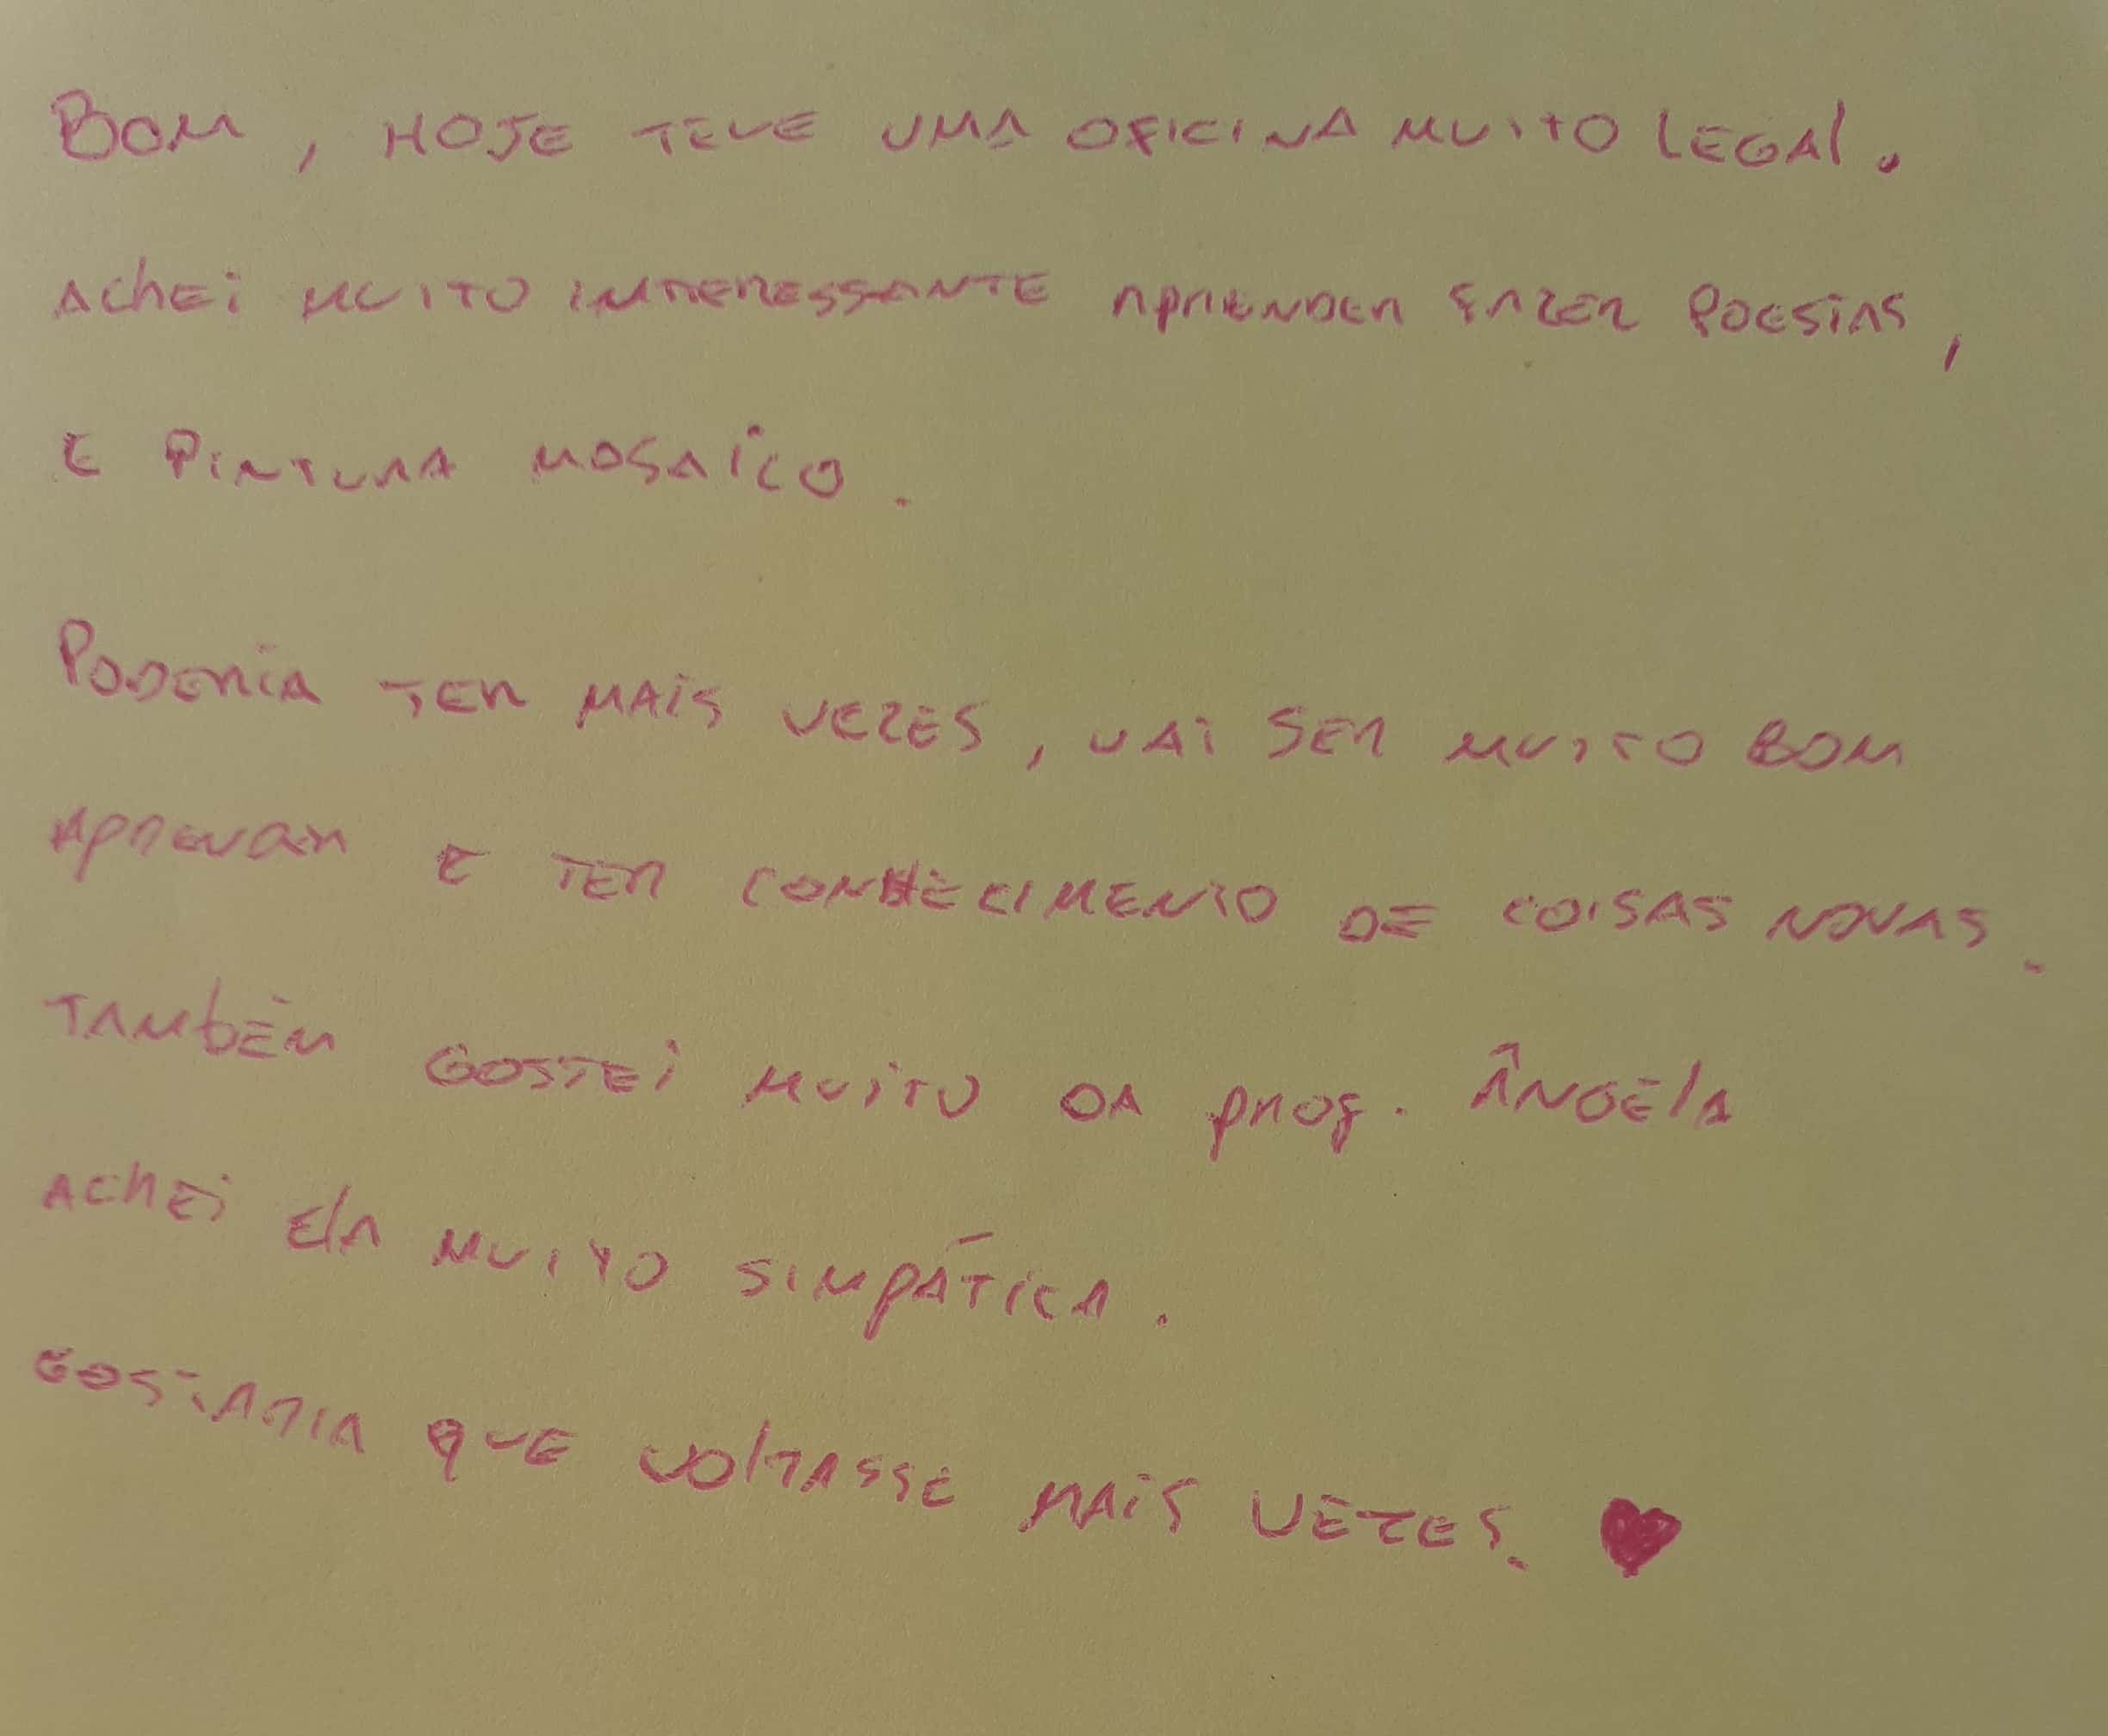 BOM, HOJE TEVE UMA OFICINA MUITO LEGAL.
ACHEI MUITO INTERESSANTE APRENDER FAZER POESIAS,
E PINTURA MOSAÍCO.
PODERIA TER MAIS VEZES, VAI SER MUITO BOM
E TER CONHECIMENTO DE COISAS NOVAS.
TAMBÉM GOSTEI MUITO DA PROF. ÂNGELA
ACHEI ELA MUITO SIMPÁTICA.
GOSTARIA QUE VOLTASSE MAIS VEZES. ♥